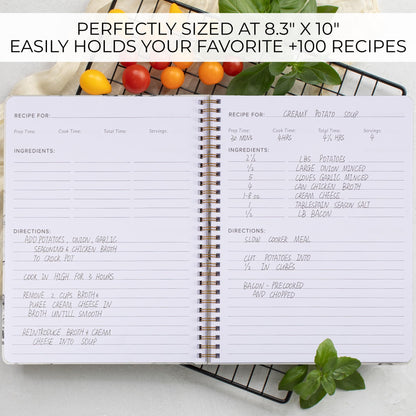 PERFECTLY SIZED AT 8.3" X 10"
EASILY HOLDS YOUR FAVORITE +100 RECIPES
RECIPE FOR:
Prep Time: Cook Time: Total Time: Servings:
INGREDIENTS:
DIRECTIONS:
ADD POTATOES, ONION, GARLIC
SEASONING & CHICKEN BROTH
TO CROCK POT
COOK IN HIGH FOR 3 HOURS
REMOVE 2 CUPS BROTH &
PUREE CREAM CHEESE IN
BROTH UNTILL SMOOTH
REINTRODUCE BROTH & CREAM
CHEESE INTO SOUP
RECIPE FOR: CREAMY POTATO SOUP
Prep Time: Cook Time: Total Time: Servings:
30 MINS 4HRS 4½ HRS 4
INGREDIENTS:
2½ LBS POTATOES
½ LARGE ONION MINCED
5 CLOVES GARLIC MINCED
4 CAN CHICKEN BROTH
1-8 oz CREAM CHEESE
1 TABLESPAIN SEASON SALT
½ LB BACON
DIRECTIONS:
SLOW COOKER MEAL
CUT POTATOES INTO
½ IN CUBES
BACON - PRECOOKED
AND CHOPPED